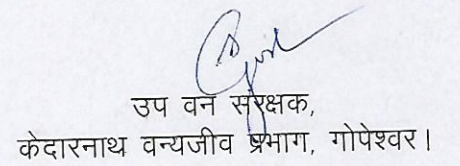 उप वन संरक्षक,
केदारनाथ वन्यजीव प्रभाग, गोपेश्वर।